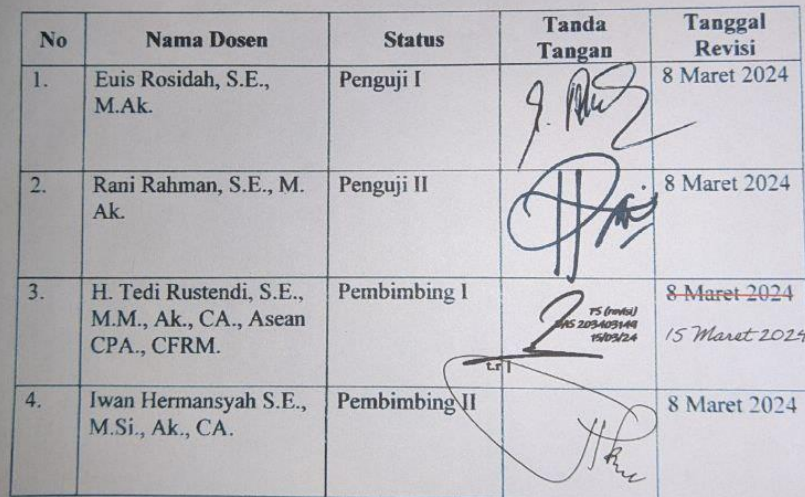 No Nama Dosen Status Tanda Tangan Tanggal Revisi
1. Euis Rosidah, S.E., M.Ak. Penguji I 8 Maret 2024
2. Rani Rahman, S.E., M. Ak. Penguji II 8 Maret 2024
3. H. Tedi Rustendi, S.E., M.M., Ak., CA., Asean CPA., CFRM. Pembimbing I TS (revisi) 203403149 15/03/24 t.r 8 Maret 2024 15 Maret 2024
4. Iwan Hermansyah S.E., M.Si., Ak., CA. Pembimbing II 8 Maret 2024